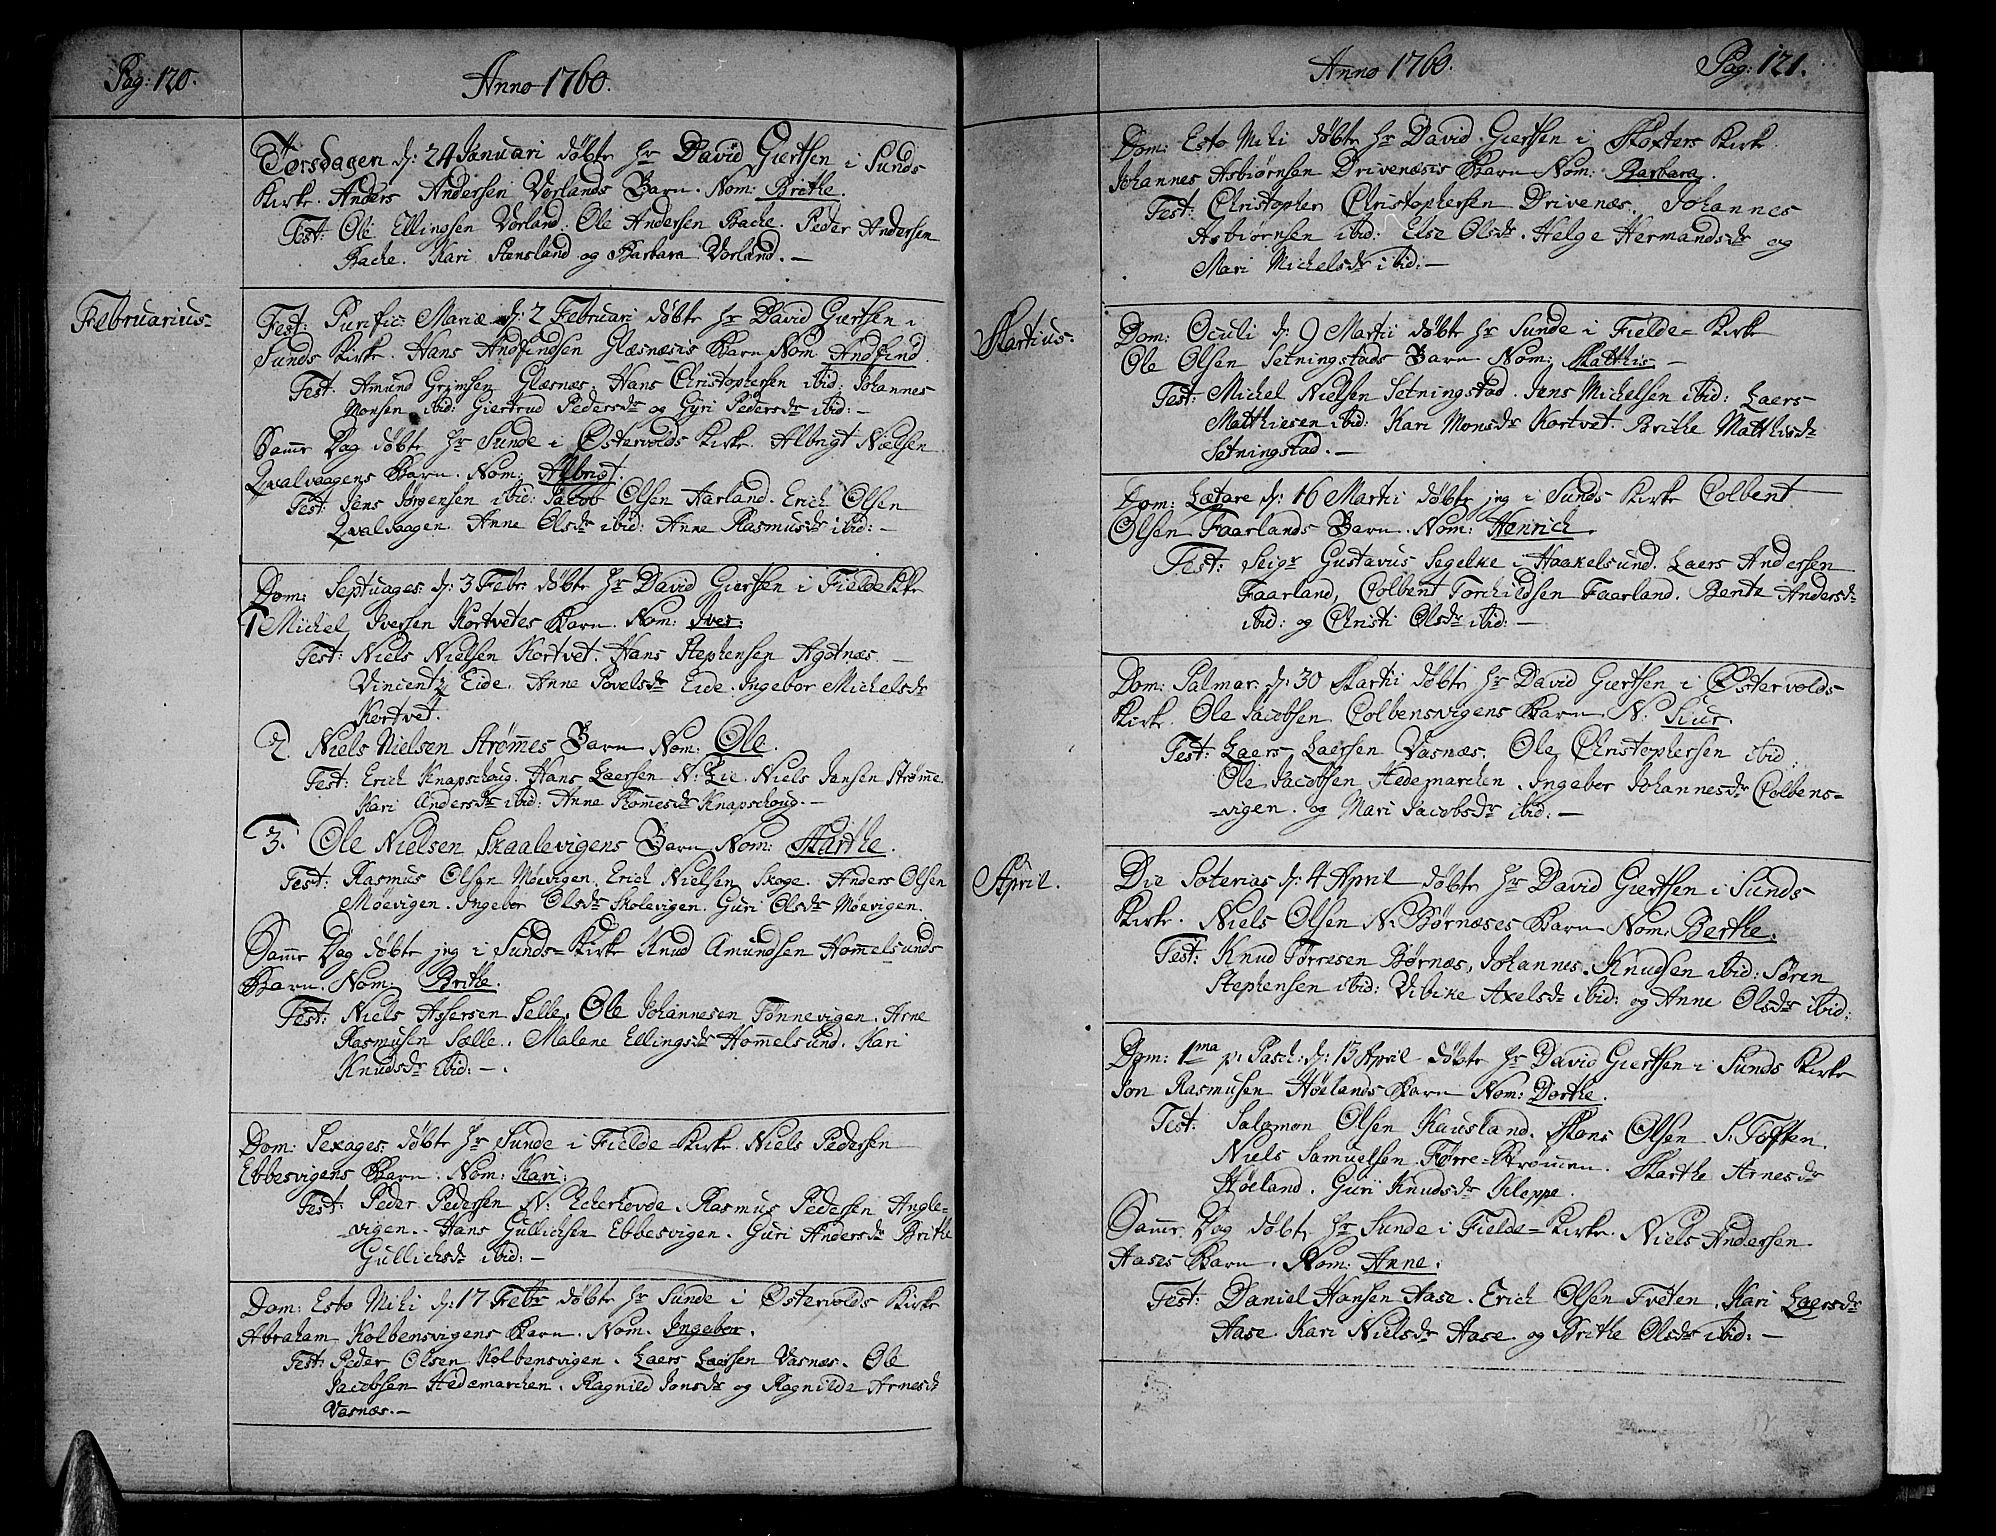 Pag: 120.
Anno 1760.
Torsdagen d: 24 Januari døbte Hr David Giertsen i Sunds
Kirke. Anders Andersen Vorlands Barn. Nom: Brithe.
Test: Ole Ellingsen Vorland. Ole Andersen Bache. Peder Andersen
Bache. Kari Stensland og Barbara Vorland. —
Februarius-
Fest: Purific: Mariæ d: 2 Februari døbte Hr David Giertsen i
Sunds Kirke. Hans Andfindsen Glæsnæsis Barn Nom Andfind.
Test: Amund Grimsen Glæsnæs. Hans Christophersen ibid: Johannes
Monsen ibid: Giertrud Pedersdr og Gyri Pedersdr ibid: —
Samme Dag døbte Hr Sunde i Østervolds Kirke. Albrigt Nielsen
Qvalvaagens Barn. Nom: Albrigt.
Test: Jens Jørgensen ibid: Jacob Olsen Aarland. Erich Olsen
Qvalvaagen. Anne Olsdr ibid: Anne Rasmusdr ibid: —
Dom: Septuages: d: 3 Febr: døbte Hr David Giertsen i Fielde Kke
1 Michel Iversen Kortvetes Barn. Nom: Iver:
Test: Niels Nielsen Kortvet. Hans Stephensen Agotnæs —
Vincentz Eide. Anne Povelsdr Eide. Ingebor Michelsdr
Kortvet.
2. Niels Nielsen Strømes Barn Nom: Ole.
Test: Erich Knapschoug. Hans Laersen N: Lie. Niels Jansen Strøme.
Kari Andersdr ibid: Anne Thomesdr Knapschoug. —
3. Ole Nielsen Skaalevigens Barn Nom: Marthe.
Test: Rasmus Olsen Møevigen. Erich Nielsen Skoge. Anders Olsen
Møevigen. Ingebor Olsdr Skolevigen. Guri Olsdr Møevigen.
Samme Dag døbte jeg i Sunds-Kirke Knud Amundsen Homelsunds
Barn. Nom: Brithe.
Test: Niels Assersen Selle. Ole Johannesen Tønnevigen. Arne
Rasmusen Sælle. Malene Ellingsdr Homelsund. Kari
Knudsdr ibid: —.
Dom: Sexages: døbte Hr Sunde i Fielde-Kirke. Niels Pedersen
Ebbesvigens Barn. Nom: Kari:
Test: Peder Pedersen N: Eckerhovde. Rasmus Pedersen Angle-
-vigen. Hans Gullichsen Ebbesvigen. Guri Andersdr Brithe
Gullichsdr ibid: —
Dom: Esto Mihi d: 17 Febr døbte Hr Sunde i Østervolds Kirke
Abraham Kolbensvigens Barn. Nom. Ingebor.
Test: Peder Olsen Kolbensvigen. Laers Laersen Vasnæs. Ole
Jacobsen Hedemarchen. Ragnild Jonsdr og Ragnilde Arnesdr
Vasnæs. —
Anno 1760.
Pag: 121.
Dom: Esto Mihi døbte Hr David Giertsen i Tofters Kirke
Johannes Asbiørnsen Drivenæsis Barn Nom: Barbara.
Test: Christopher Christophersen Drivenæs. Johannes
Asbiørnsen ibid: Else Olsdr. Helge Hermandsdr og
Mari Michelsdr ibid: —
Martius-
Dom: Oculi d: 9 Martii døbte Hr Sunde i Fielde-Kirke
Ole Olsen Setningstads Barn Nom: Matthis —
Test: Michel Nielsen Setningstad. Jens Michelsen ibid: Laers
Matthiesen ibid: Kari Monsdr Kortvet. Brithe Matthisdr
Setningstad. —
Dom: Lætare d: 16 Martii døbte jeg i Sunds Kirke Colbent
Olsen Faarlands Barn. Nom: Henrich.
Test: Seigr Gustavus Segelke i Haakelsund. Laers Andersen
Faarland, Colbent Torchildsen Faarland. Bente Andersdr
ibid: og Christi Olsdr ibid: —
Dom: Palmar: d: 30 Martii døbte Hr David Giertsen i Østervolds
Kirke. Ole Jacobsen Colbensvigens Barn N: Siur
Test: Laers Laersen Vasnæs. Ole Christophersen ibid:
Ole Jacobsen Hedemarchen. Ingebor Johannesdr Colbens-
-vigen. og Mari Jacobsdr ibid: —
April.
Die Soterias d: 4 April døbte Hr David Giertsen i Sunds
Kirke. Niels Olsen N: Børnæses Barn Nom: Berthe.
Test: Knud Tørresen Børnæs, Johannes Knudsen ibid: Søren
Stephensen ibid: Vibike Axelsdr ibid: og Anne Olsdr ibid:
Dom: 1ma p: Pasch: d: 13 April døbte Hr David Giertsen i Sunds Kirke
Jon Rasmusen Høelands Barn Nom: Dorthe.
Test: Salomon Olsen Kausland. Mons Olsen S: Toften.
Niels Samuelsen Tørre-Strømen. Marthe Arnesdr
Høeland. Guri Knudsdr Kleppe.
Samme Dag døbte Hr Sunde i Fielde-Kirke. Niels Andersen
Aases Barn. Nom: Anne.
Test: Daniel Hansen Aase. Erich Olsen Tveten. Kari Laersdr
Aase. Kari Nielsdr Aase og Brithe Olsdr ibid: —